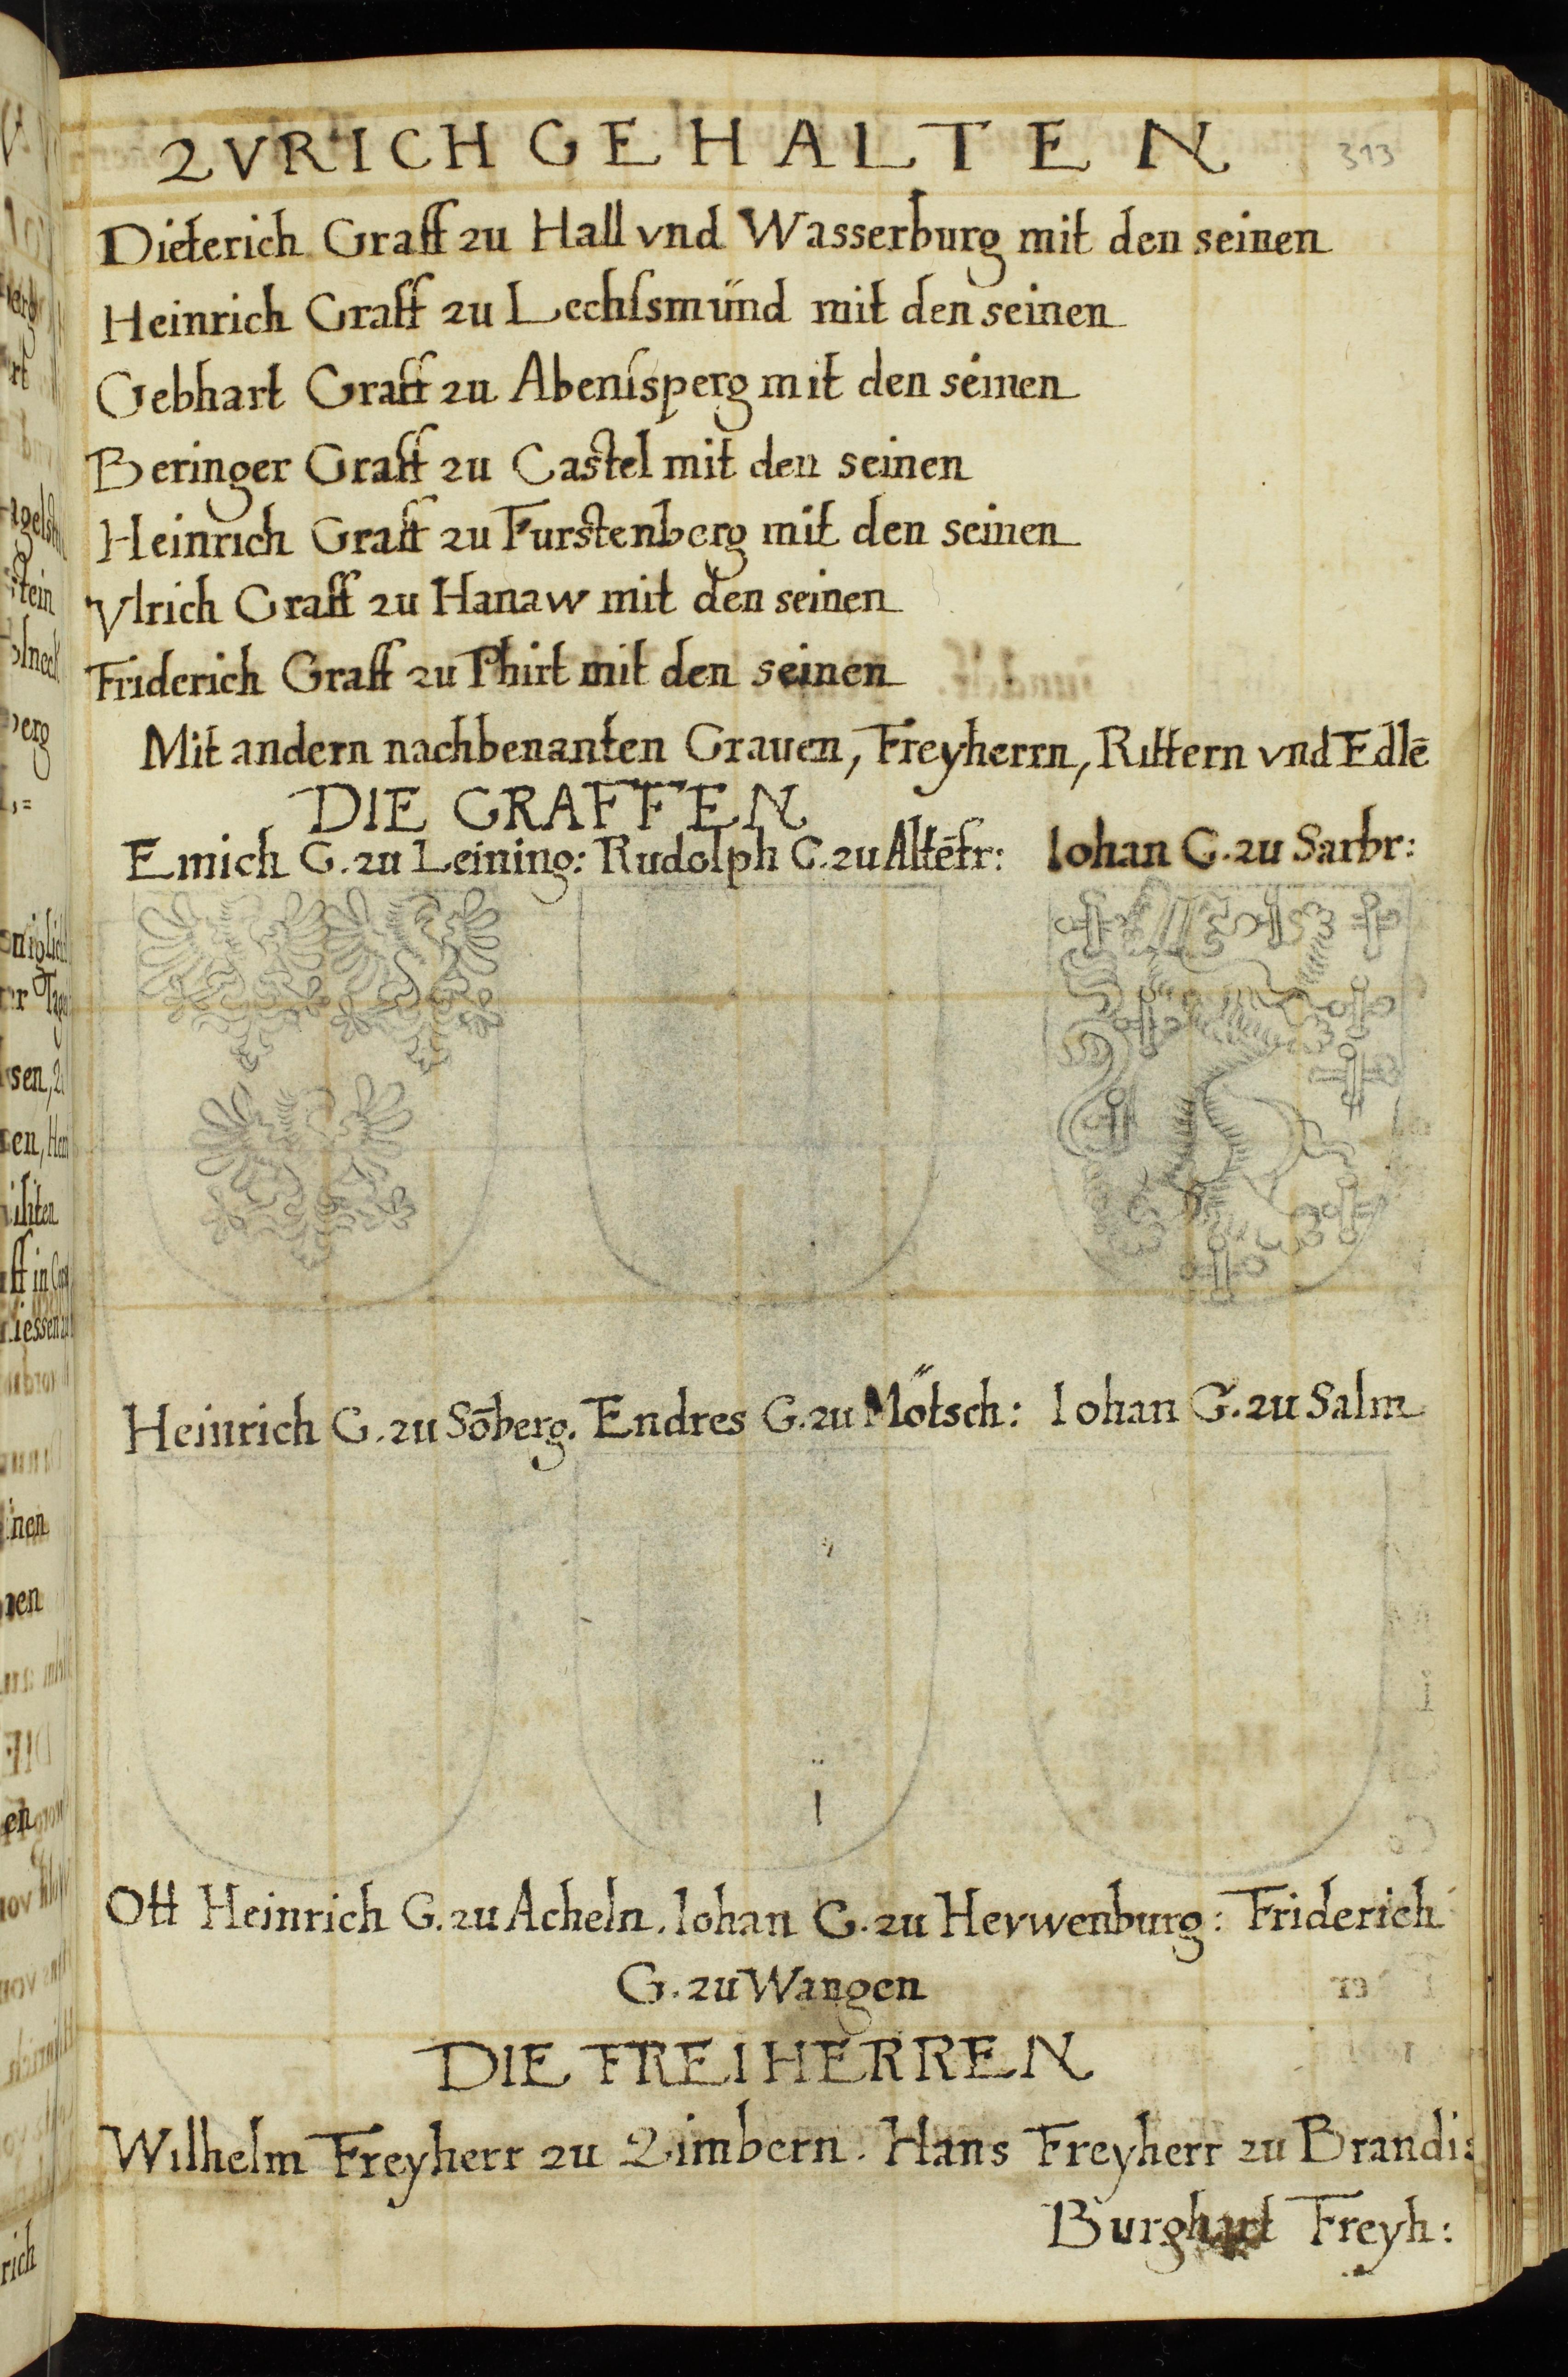 ZVRICH GEHALTEN 313
Dieterich Graff zu Hall vnd Wasserburg mit den seinen
Heinrich Graff zu Lechsmünd mit den seinen
Gebhart Graff zu Abensperg mit den seinen
Beringer Graff zu Castel mit den seinen
Heinrich Graff zu Furstenberg mit den seinen
Vlrich Graff zu Hanaw mit den seinen
Friderich Graff zu Phirt mit den seinen
Mit andern nachbenanten Grauen, Freyherrn, Rittern vnd Edlē
DIE GRAFFEN
Emich G. zu Leining: Rudolph G. zu Altēfr: Iohan G. zu Sarbr:
Heinrich G. zu Sōberg. Endres G. zu Mötsch: Iohan G. zu Salm
Ott Heinrich G. zu Acheln. Iohan G. zu Hevwenburg: Friderich
G. zu Wangen
DIE FREIHERREN
Wilhelm Freyherr zu Zimbern. Hans Freyherr zu Brandis
Burghart Freyh: